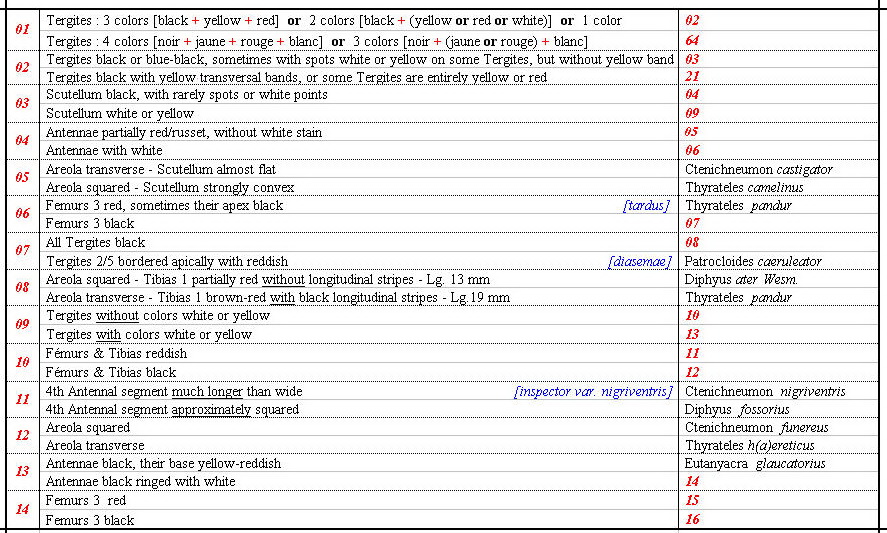 01 Tergites : 3 colors [black + yellow + red] or 2 colors [black + (yellow or red or white)] or 1 color 02
Tergites : 4 colors [noir + jaune + rouge + blanc] or 3 colors [noir + (jaune or rouge) + blanc] 64
02 Tergites black or blue-black, sometimes with spots white or yellow on some Tergites, but without yellow band 03
Tergites black with yellow transversal bands, or some Tergites are entirely yellow or red 21
03 Scutellum black, with rarely spots or white points 04
Scutellum white or yellow 09
04 Antennae partially red/russet, without white stain 05
Antennae with white 06
05 Areola transverse - Scutellum almost flat Ctenichneumon castigator
Areola squared - Scutellum strongly convex Thyrateles camelinus
06 Femurs 3 red, sometimes their apex black [tardus] Thyrateles pandur
Femurs 3 black 07
07 All Tergites black 08
Tergites 2/5 bordered apically with reddish [diasemae] Patrocloides caeruleator
08 Areola squared - Tibias 1 partially red without longitudinal stripes - Lg. 13 mm Diphyus ater Wesm.
Areola transverse - Tibias 1 brown-red with black longitudinal stripes - Lg.19 mm Thyrateles pandur
09 Tergites without colors white or yellow 10
Tergites with colors white or yellow 13
10 Fémurs & Tibias reddish 11
Fémurs & Tibias black 12
11 4th Antennal segment much longer than wide [inspector var. nigriventris] Ctenichneumon nigriventris
4th Antennal segment approximately squared Diphyus fossorius
12 Areola squared Ctenichneumon funereus
Areola transverse Thyrateles h(a)ereticus
13 Antennae black, their base yellow-reddish Eutanyacra glaucatorius
Antennae black ringed with white 14
14 Femurs 3 red 15
Femurs 3 black 16